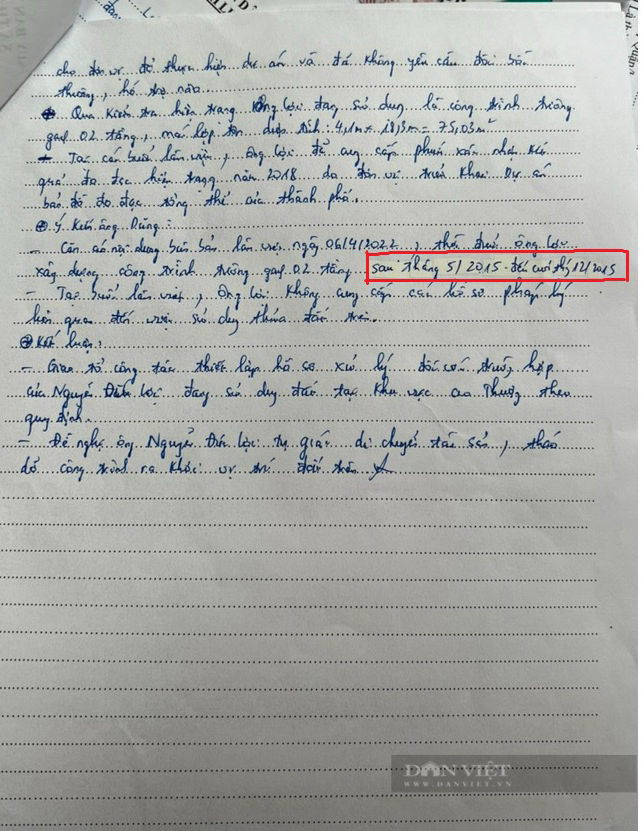 cho đơn vị để thực hiện dự án và đã không yêu cầu đòi bồi
thường, hỗ trợ nào.
Qua kiểm tra hiện trạng ông Lợi đang sử dụng là công trình trường
gạch 02 tầng, mái lợp tôn diện tích: 4,1m x 18,3m = 75,03m²
Tại cá buổi làm việc, ông Lợi đã cung cấp phiếu xác nhận kết
quả đo đạc hiện trạng năm 2018 do đơn vị triển khai dự án
bản đồ đo đạc tổng thể của thành phố.
Ý kiến ông Dũng:
- Căn cứ nội dung biên bản làm việc ngày 06/4/2022, thời điểm ông Lợi
xây dựng công trình tường gạch 02 tầng sau tháng 5/2015 đến cuối th 12/2015
- Tại buổi làm việc, ông Lợi không cung cấp các hồ sơ pháp lý
liên quan đến việc sử dụng thửa đất trên.
Kết luận:
- Giao tổ công tác thiết lập hồ sơ xử lý đối với trường hợp
của Nguyễn Đức Lợi đang sử dụng đất tại khu vực Cao Thượng theo
quy định.
- Đề nghị ông Nguyễn Đức Lợi tự giác di chuyển tài sản, tháo
dỡ công trình ra khỏi vị trí đất trên
DÂN VIỆT
WWW.DANVIET.VN